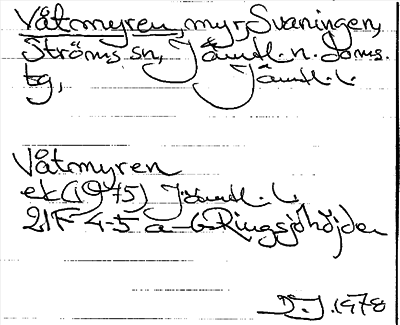 Våtmyren, myr, Svaningen,
Ströms sn, Jämtl. n. doms.
tg, Jämtl. l.
Våtmyren
ek (1975) Jämtl. l.
21F 4-5 a-b Ringsjöhöjden
D. J. 1978